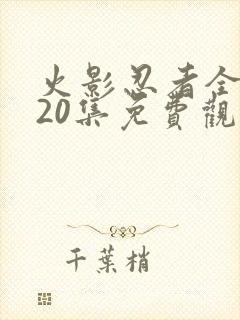 火影忍者全
20集免費觀
千葉梢